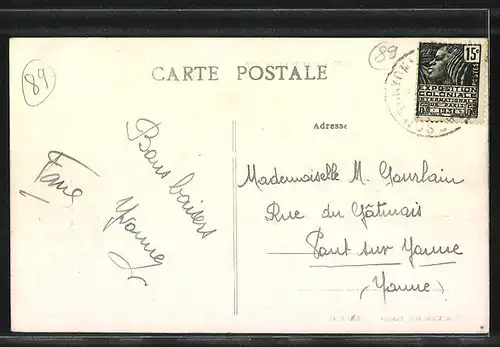 89
89
CARTE POSTALE
15c
POSTES
EXPOSITION
COLONIALE
INTERNATIONALE
PARIS
1931
Adresse
Bons baisers
Yvonne
Mademoiselle M. Gourlain
Rue du Gâtinais
Pont sur Yonne
(Yonne)